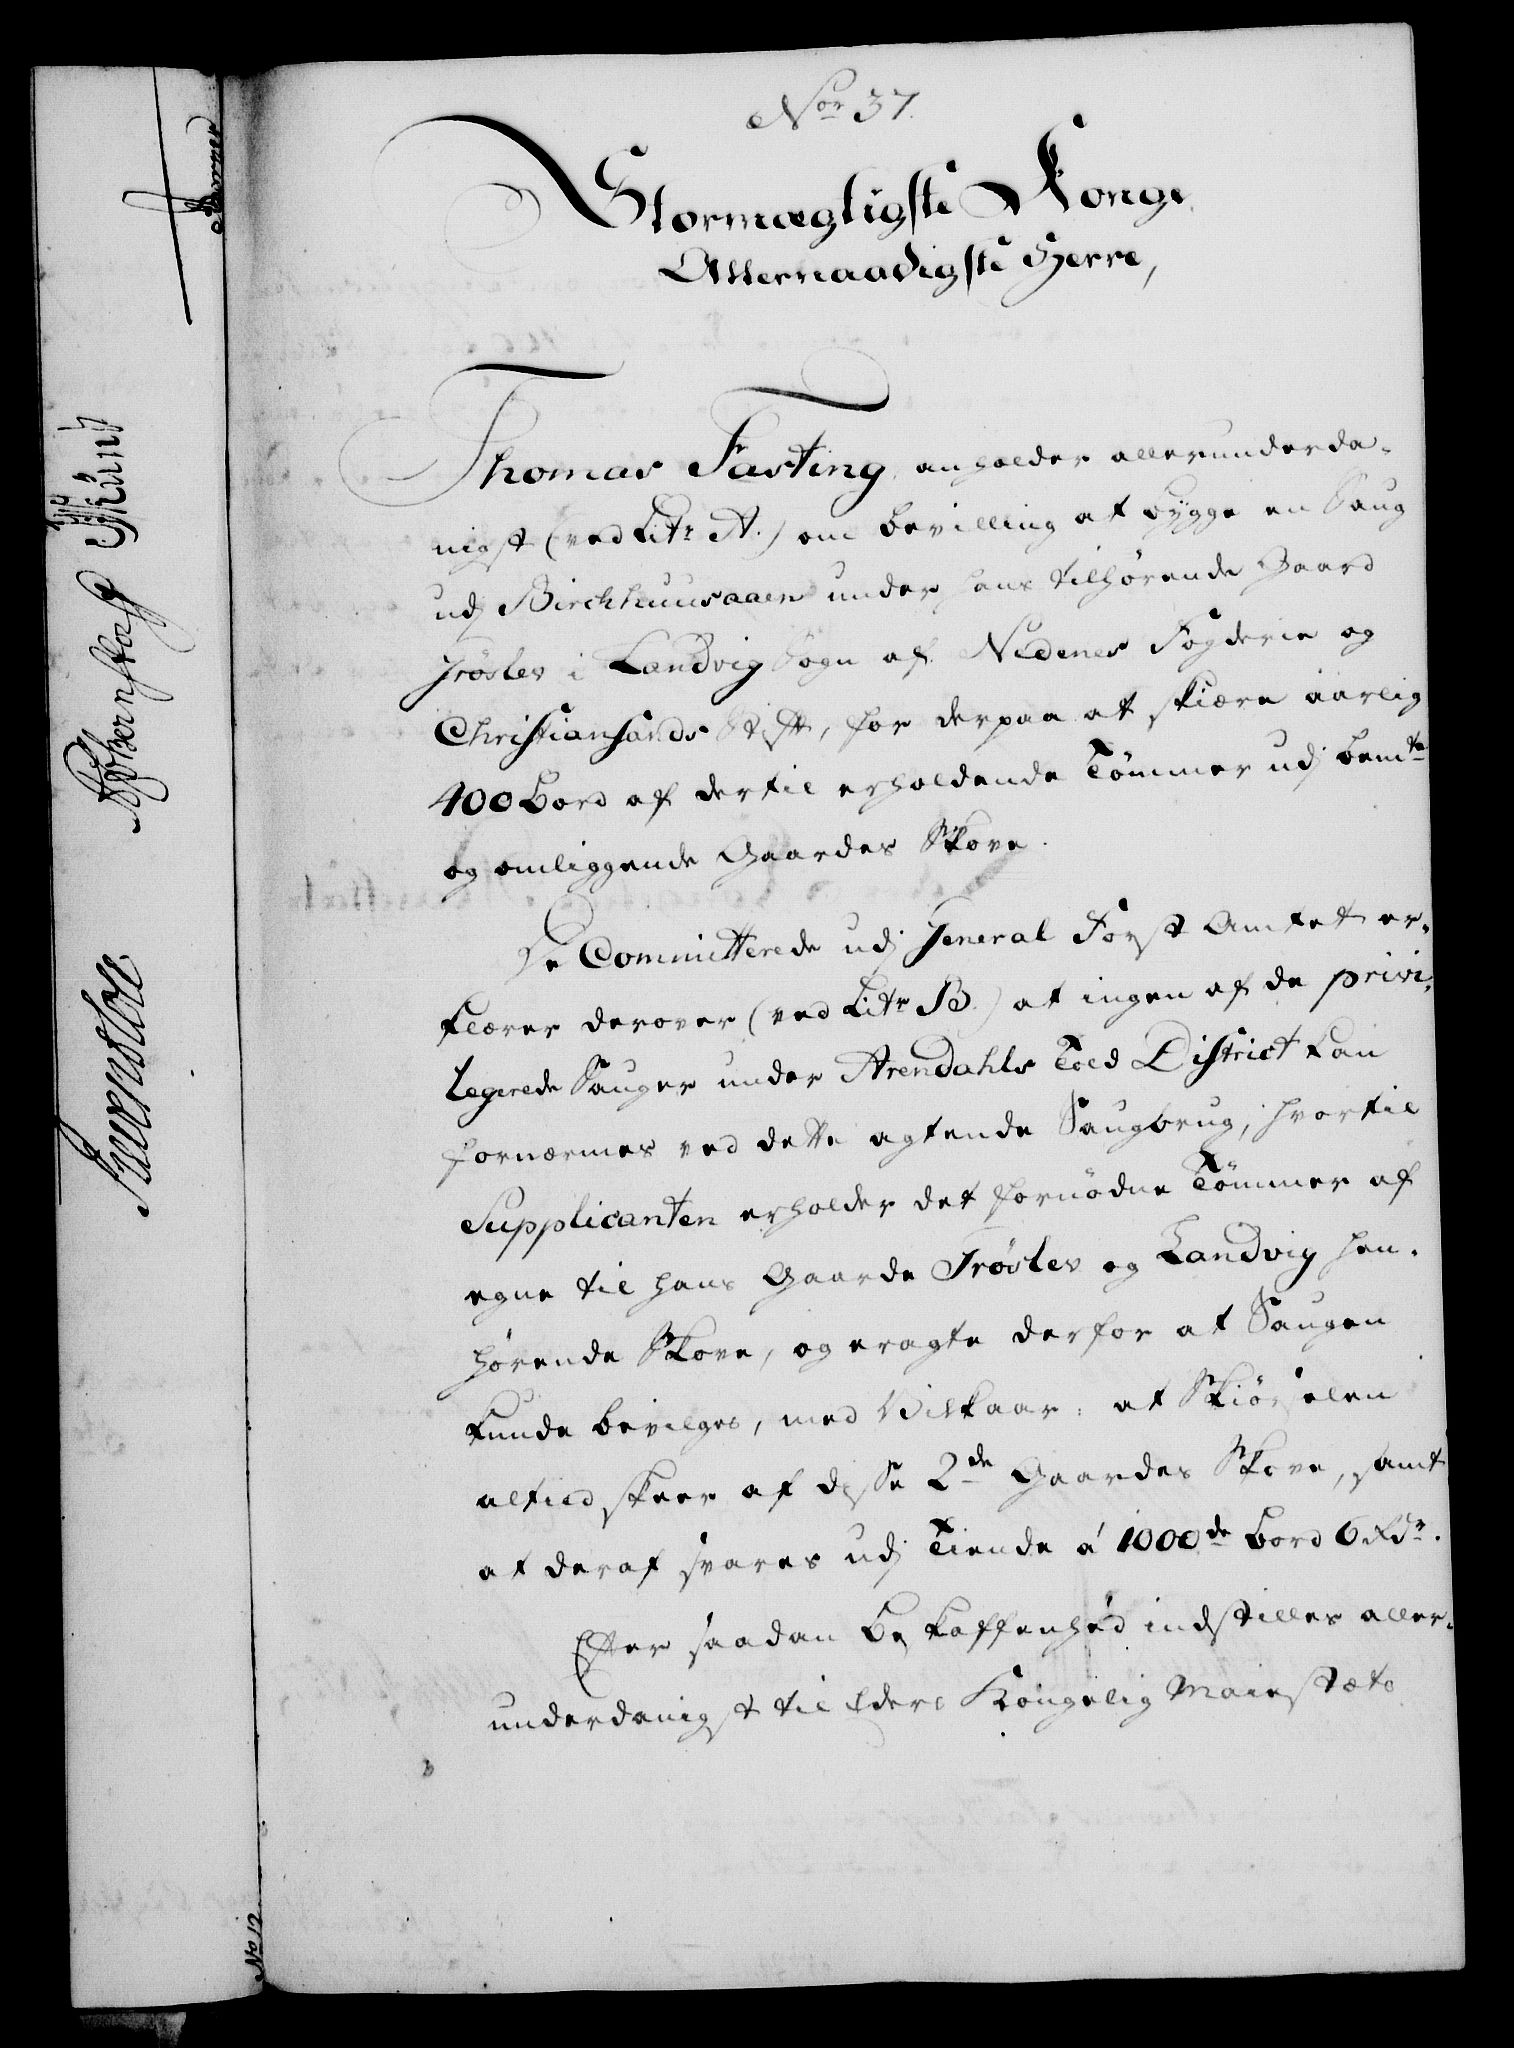 Nor 37.
Stormægtigste Konge
Allernaadigste Herre,
Thomas Fasting anholder allerunderda-
nigst (ved Litr A.) om Bevilling at bygge en Saug
udj Birchhuusaaen under hans tilhørende Gaard
Trøslev i Landvig Sogn af Nedenes Fogderie og
Christiansands Stift, for derpaa at skiære aarlig
400 Bord af dertil erholdende Tømmer udj bemte
og omliggende Gaardes Skove.
De Committerede udj General Forst Amtet er-
klærer derover (ved Litr B.) at ingen af de privi-
legerede Sauger under Arendahls Told District kan
fornærmes ved dette agtende Saugbrug, hvortil
Supplicanten erholder det fornødne Tømmer af
egne til hans Gaarde Trøslev og Landvig hen-
hørende Skove, og eragte derfor at Saugen
kunde bevilges, med Vilkaar: at Skiørselen
altiid skeer af disse 2de Gaardes Skove, samt
at deraf svares udj Tiende á 1000de Bord 6 Rdr.
Efter saadan Beskaffenhed indstilles aller-
underdanigst til Eders Kongelig Maiestæts
No 12